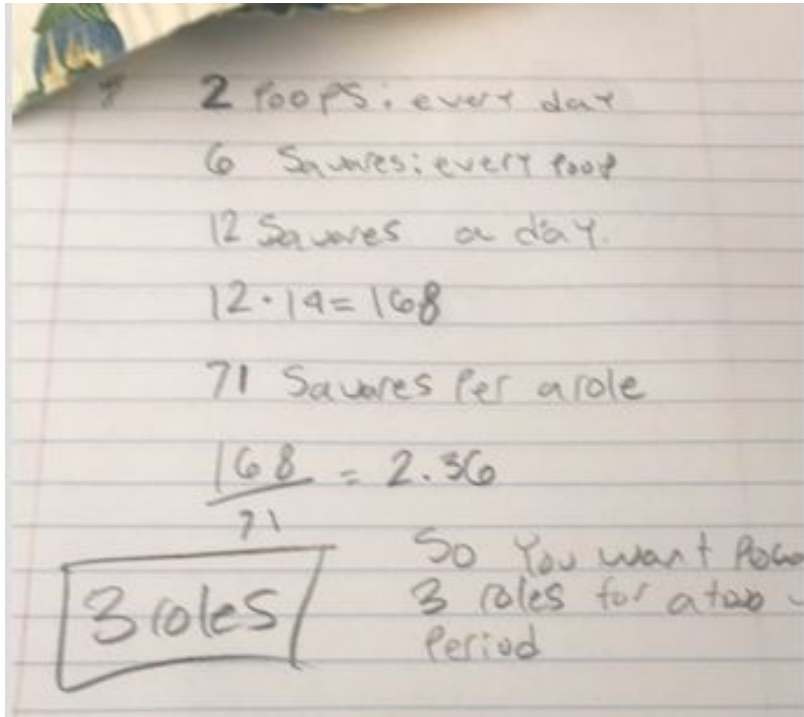 2 Poops: every day
6 Squares: every Poop
12 Squares a day.
12 · 14 = 168
71 Squares Per a role
168
/71 = 2.36
3 roles
So You want
3 roles for a
Period